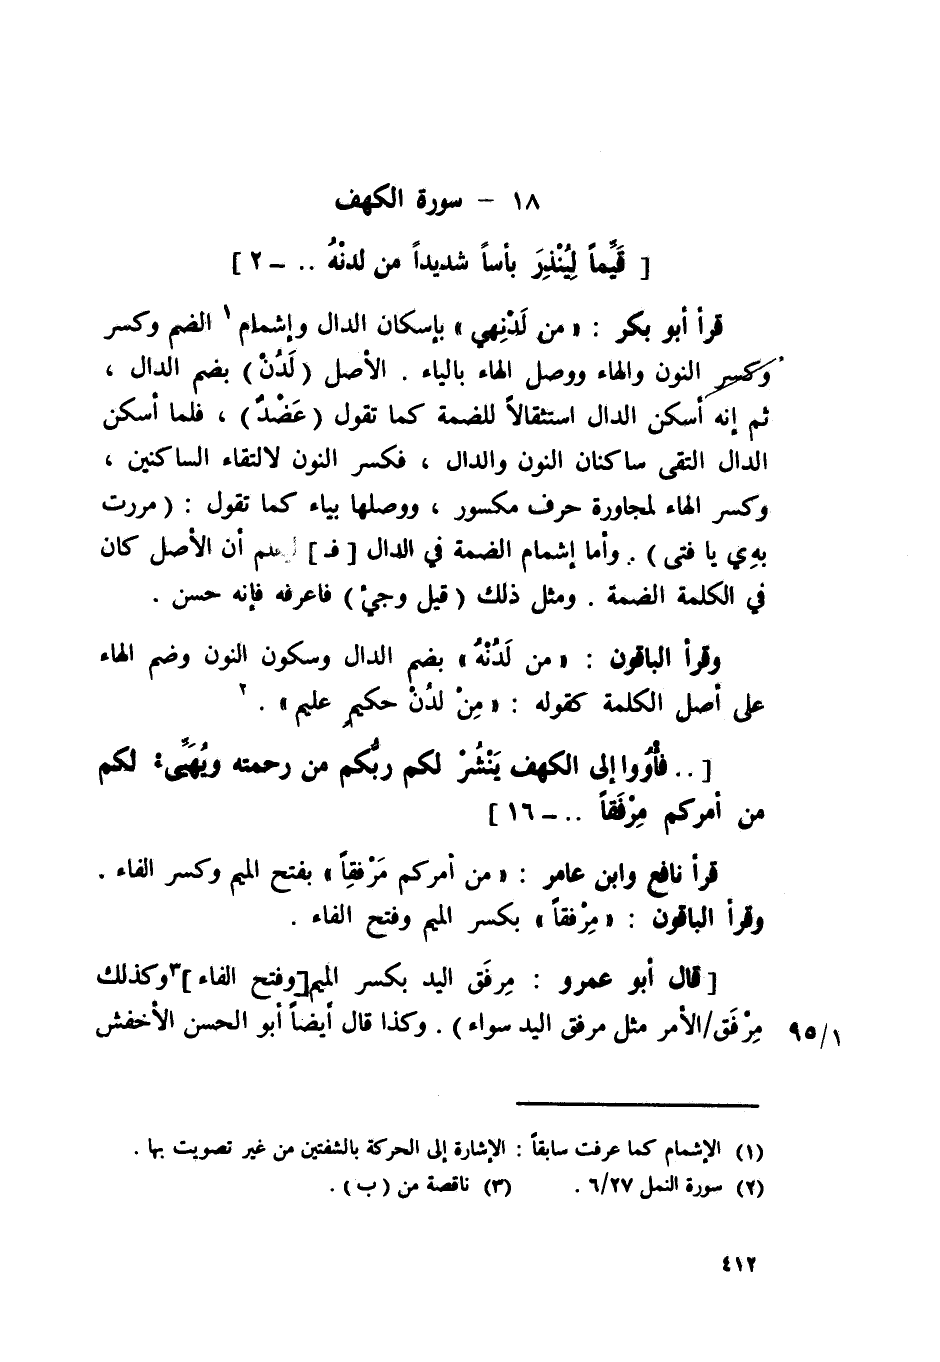 ١٨ – سورة الكهف
[ قَيِّماً لِيُنْذِرَ بأساً شديداً من لدنْهُ .. – ٢ ]
قرأ أبو بكر : « من لَدْنِهي » بإسكان الدال وإشمام١ الضم وكسر
وكسر النون والهاء ووصل الهاء بالياء . الأصل ( لَدُنْ ) بضم الدال ،
ثم إنه أسكن الدال استثقالاً للضمة كما تقول ( عَضْدٌ ) ، فلما أسكن
الدال التقى ساكنان النون والدال ، فكسر النون لالتقاء الساكنين ،
وكسر الهاء لمجاورة حرف مكسور ، ووصلها بياء كما تقول : ( مررت
بهِي يا فتى ) . وأما إشمام الضمة في الدال [ فـ ] ليعلم أن الأصل كان
في الكلمة الضمة . ومثل ذلك ( قيل وجيْ ) فاعرفه فإنه حسن .
وقرأ الباقون : « من لَدُنْهُ » بضم الدال وسكون النون وضم الهاء
على أصل الكلمة كقوله : « مِنْ لدُنْ حكيمٍ عليم » .٢
[ .. فأْوُوا إلى الكهف يَنْشُرْ لكم ربُّكم من رحمته ويُهَيِّىءْ لكم
من أمركم مِرْفَقاً .. – ١٦ ]
قرأ نافع وابن عامر : « من أمركم مَرْفِقاً » بفتح الميم وكسر الفاء .
وقرأ الباقون : « مِرْفقاً » بكسر الميم وفتح الفاء .
[ قال أبو عمرو : مِرفَق اليد بكسر الميم [وفتح الفاء ]٣ وكذلك
٩٥/١ مِرْفَق/الأمر مثل مرفق اليد سواء ) . وكذا قال أيضاً أبو الحسن الأخفش
(١) الإشمام كما عرفت سابقاً : الإشارة إلى الحركة بالشفتين من غير تصويت بها .
(٢) سورة النمل ٦/٢٧ . (٣) ناقصة من ( ب ) .
٤١٢